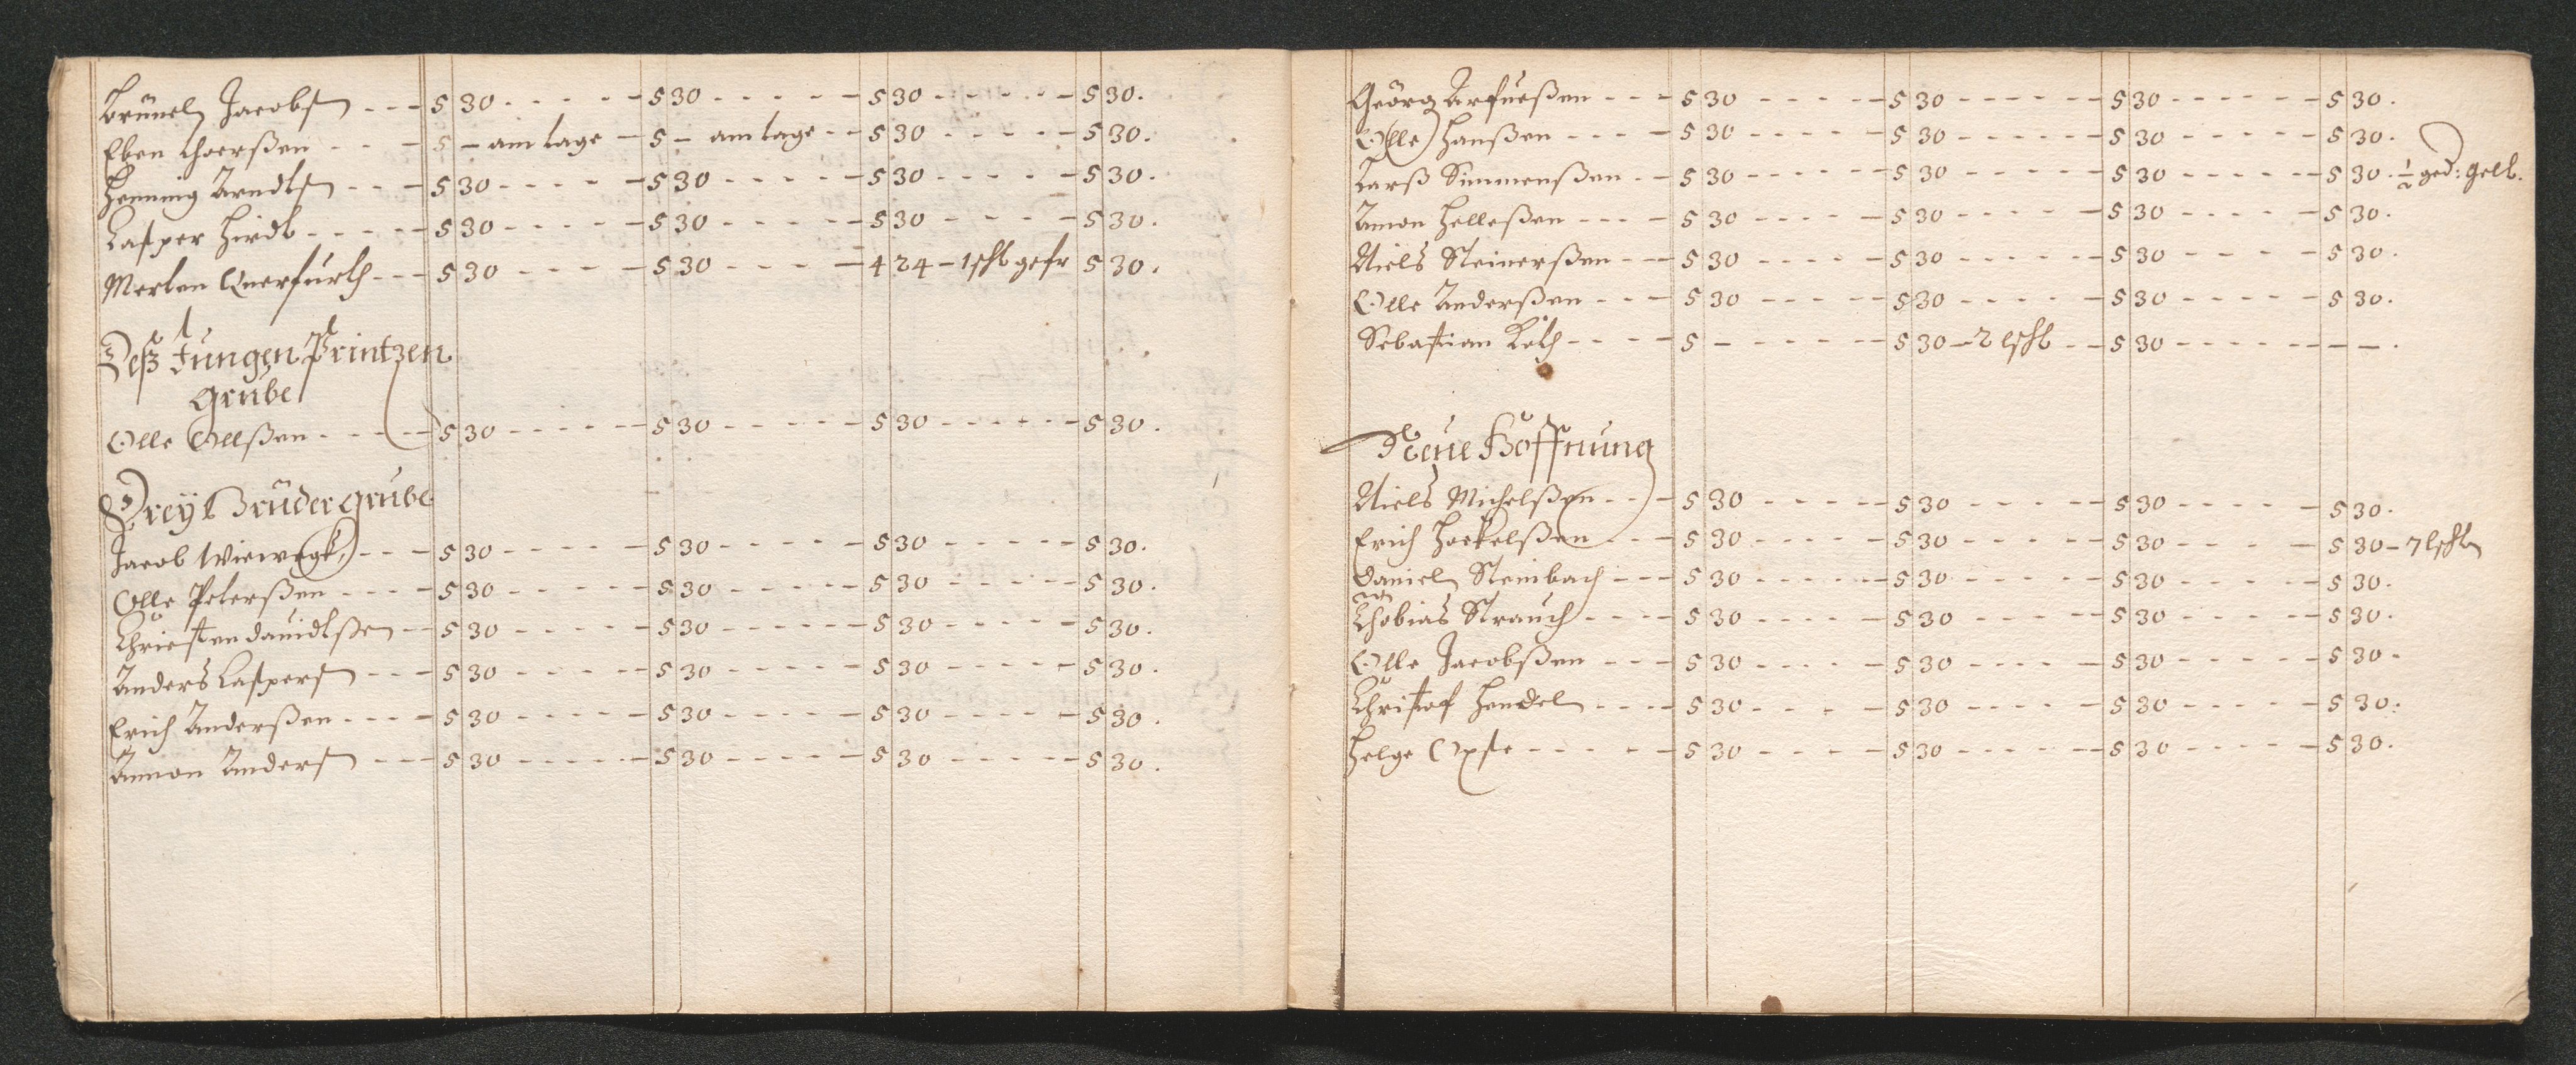 Brünel Jacobsen - - - 5 30 - - - - - 5 30 - - - - - 5 30 - - - - - 5 30.
Eben Thoerßen - - - 5 - am tage - 5 - am tage - - 5 30 - - - - - 5 30.
Henning Arndtsen - - - 5 30 - - - - - 5 30 - - - - - 5 30 - - - - - 5 30.
Casper Hirdt - - - - - 5 30 - - - - - 5 30 - - - - - 5 30 - - - - - 5 30.
Merten Querfurth - - - 5 30 - - - - - 5 30 - - - - - 4 24 - 1 scht gefr 5 30.
Deß Jungen Printzen
Grube
Olle Ollßen - - - - - 5 30 - - - - - 5 30 - - - - - 5 30 - - - - - 5 30.
Drey Brüder grube
Jacob Wiewegk, - - - 5 30 - - - - - 5 30 - - - - - 5 30 - - - - - 5 30.
Olle Peterßen - - - - 5 30 - - - - - 5 30 - - - - - 5 30 - - - - - 5 30.
Christen Davidtßen - - 5 30 - - - - - 5 30 - - - - - 5 30 - - - - - 5 30.
Anders Caspersen - - - 5 30 - - - - - 5 30 - - - - - 5 30 - - - - - 5 30.
Erich Anderßen - - - - 5 30 - - - - - 5 30 - - - - - 5 30 - - - - - 5 30.
Amon Andersen - - - 5 30 - - - - - 5 30 - - - - - 5 30 - - - - - 5 30.
Geörg Arfueßen - - - 5 30 - - - - - 5 30 - - - - - 5 30 - - - - - 5 30.
Olle Hanßen - - - - 5 30 - - - - - 5 30 - - - - - 5 30 - - - - - 5 30.
Larß Simmenßen - - 5 30 - - - - - 5 30 - - - - - 5 30 - - - - - 5 30. ½ ged: gelt.
Amon Helleßen - - - - 5 30 - - - - - 5 30 - - - - - 5 30 - - - - - 5 30.
Niels Steinerßen - - - 5 30 - - - - - 5 30 - - - - - 5 30 - - - - - 5 30.
Olle Anderßen - - - - 5 30 - - - - - 5 30 - - - - - 5 30 - - - - - 5 30.
Sebastian Koth - - - - 5 - - - - - - 5 30 - 2 lscht - - 5 30 - - - - - - - .
Neue Hoffnung
Niels Michelßen - - - 5 30 - - - - - 5 30 - - - - - 5 30 - - - - - 5 30.
Erich Hockelßen - - - 5 30 - - - - - 5 30 - - - - - 5 30 - - - - - 5 30 - 7 lschtn
Daniel Steinbach - - - 5 30 - - - - - 5 30 - - - - - 5 30 - - - - - 5 30.
Thobias Strauch - - - - 5 30 - - - - - 5 30 - - - - - 5 30 - - - - - 5 30.
Olle Jacobßen - - - - 5 30 - - - - - 5 30 - - - - - 5 30 - - - - - 5 30.
Christof Hendel - - - - 5 30 - - - - - 5 30 - - - - - 5 30 - - - - - 5 30.
Helge Opste - - - - - 5 30 - - - - - 5 30 - - - - - 5 30 - - - - - 5 30.